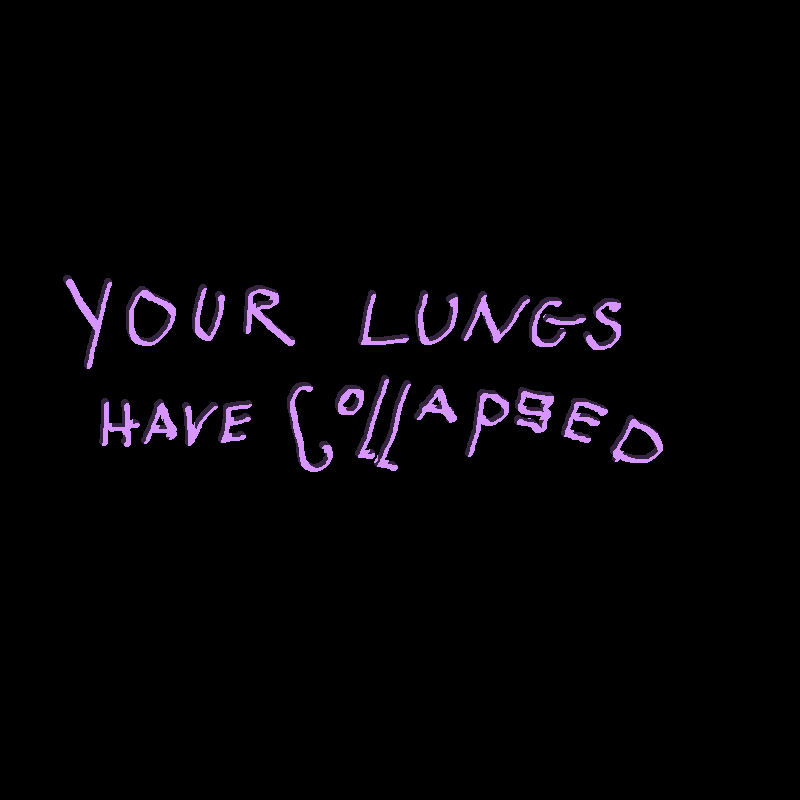 YOUR LUNGS
HAVE COllAPSED